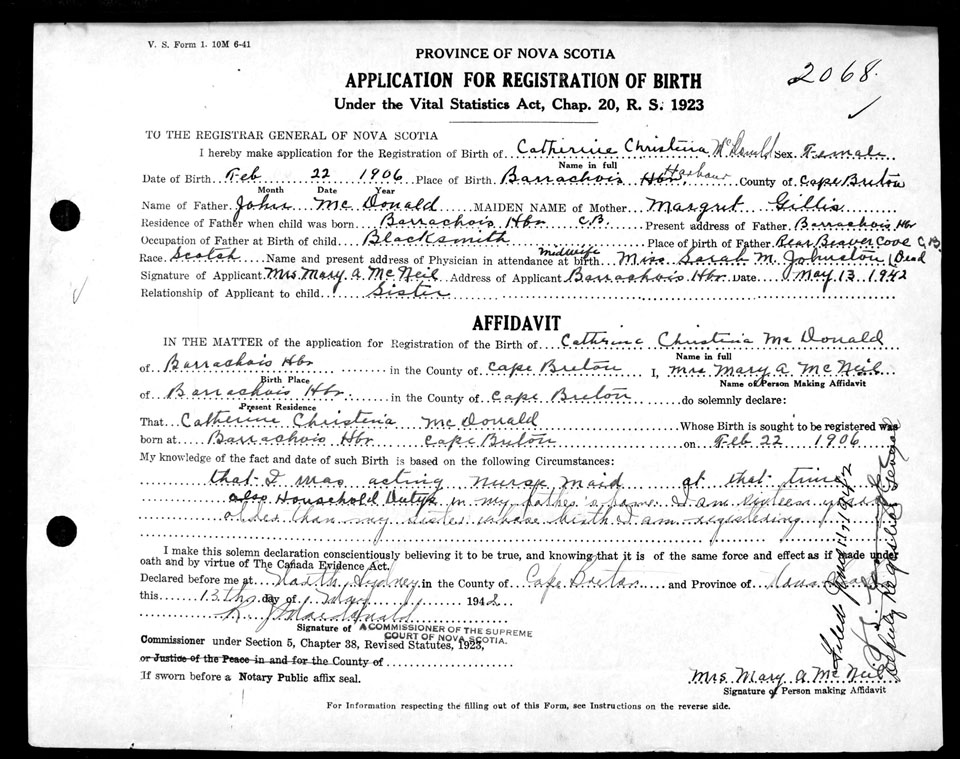 V. S. Form 1. 10M 6-41
PROVINCE OF NOVA SCOTIA
2068.
APPLICATION FOR REGISTRATION OF BIRTH
Under the Vital Statistics Act, Chap. 20, R. S. 1923
TO THE REGISTRAR GENERAL OF NOVA SCOTIA
I hereby make application for the Registration of Birth of Catherine Christina McDonald Sex Female
Name in full
Date of Birth Feb 22 1906 Place of Birth Barrachois Hbr. Harbour County of Cape Breton
Month Date Year
Name of Father John McDonald MAIDEN NAME of Mother Margret Gillis
Residence of Father when child was born Barrachois Hbr C.B. Present address of Father Barrachois Hbr
Occupation of Father at Birth of child Blacksmith Place of birth of Father Rear Beaver Cove C.B.
Race Scotch Name and present address of Physician in attendance at birth midwife Miss. Sarah M. Johnston (Dead
Signature of Applicant Mrs Mary A McNeil Address of Applicant Barrachois Hbr DATE May 13 1942
Relationship of Applicant to child Sister
AFFIDAVIT
IN THE MATTER of the application for Registration of the Birth of Cathrine Christina McDonald
Name in full
of Barrachois Hbr in the County of Cape Breton I, Mrs Mary A McNeil
Birth Place Name of Person Making Affidavit
of Barrachois Hbr in the County of Cape Breton do solemnly declare:
Present Residence
That Catherine Christena McDonald Whose Birth is sought to be registered was
born at Barrachois Hbr Cape Breton on Feb 22 1906
My knowledge of the fact and date of such Birth is based on the following Circumstances:
that I was acting Nurse Maid at that time
also Household Dutys in my father's home. I am sixteen years
older than my sister whose birth I am registering
I make this solemn declaration conscientiously believing it to be true, and knowing that it is of the same force and effect as if made under
oath and by virtue of The Canada Evidence Act.
Declared before me at North Sydney in the County of Cape Breton and Province of Nova Scotia
this 13th day of May 1942
Signature of A COMMISSIONER OF THE SUPREME
COURT OF NOVA SCOTIA.
Commissioner under Section 5, Chapter 38, Revised Statutes, 1923,
or Justice of the Peace in and for the County of
If sworn before a Notary Public affix seal.
Mrs Mary A McNeil
Signature of Person making Affidavit
For Information respecting the filling out of this Form, see Instructions on the reverse side.
Filed 1942
Deputy Registrar General